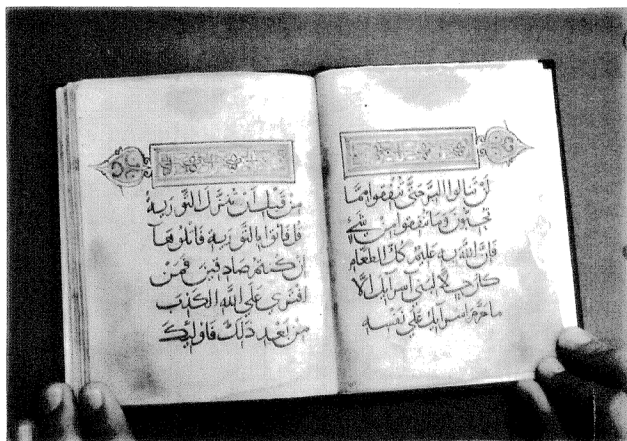 لن تنالوا البر حتى تنفقوا مما
تحبون وما تنفقوا من شيء
فإن الله به عليم كل الطعام
كان حلا لبني اسرآيل الا
ما حرم اسرآيل على نفسه
من قبل أن تنزل التورية
قل فاتوا بالتورية فاتلوها
ان كنتم صادقين فمن
افترى على الله الكذب
من بعد ذلك فاوليك